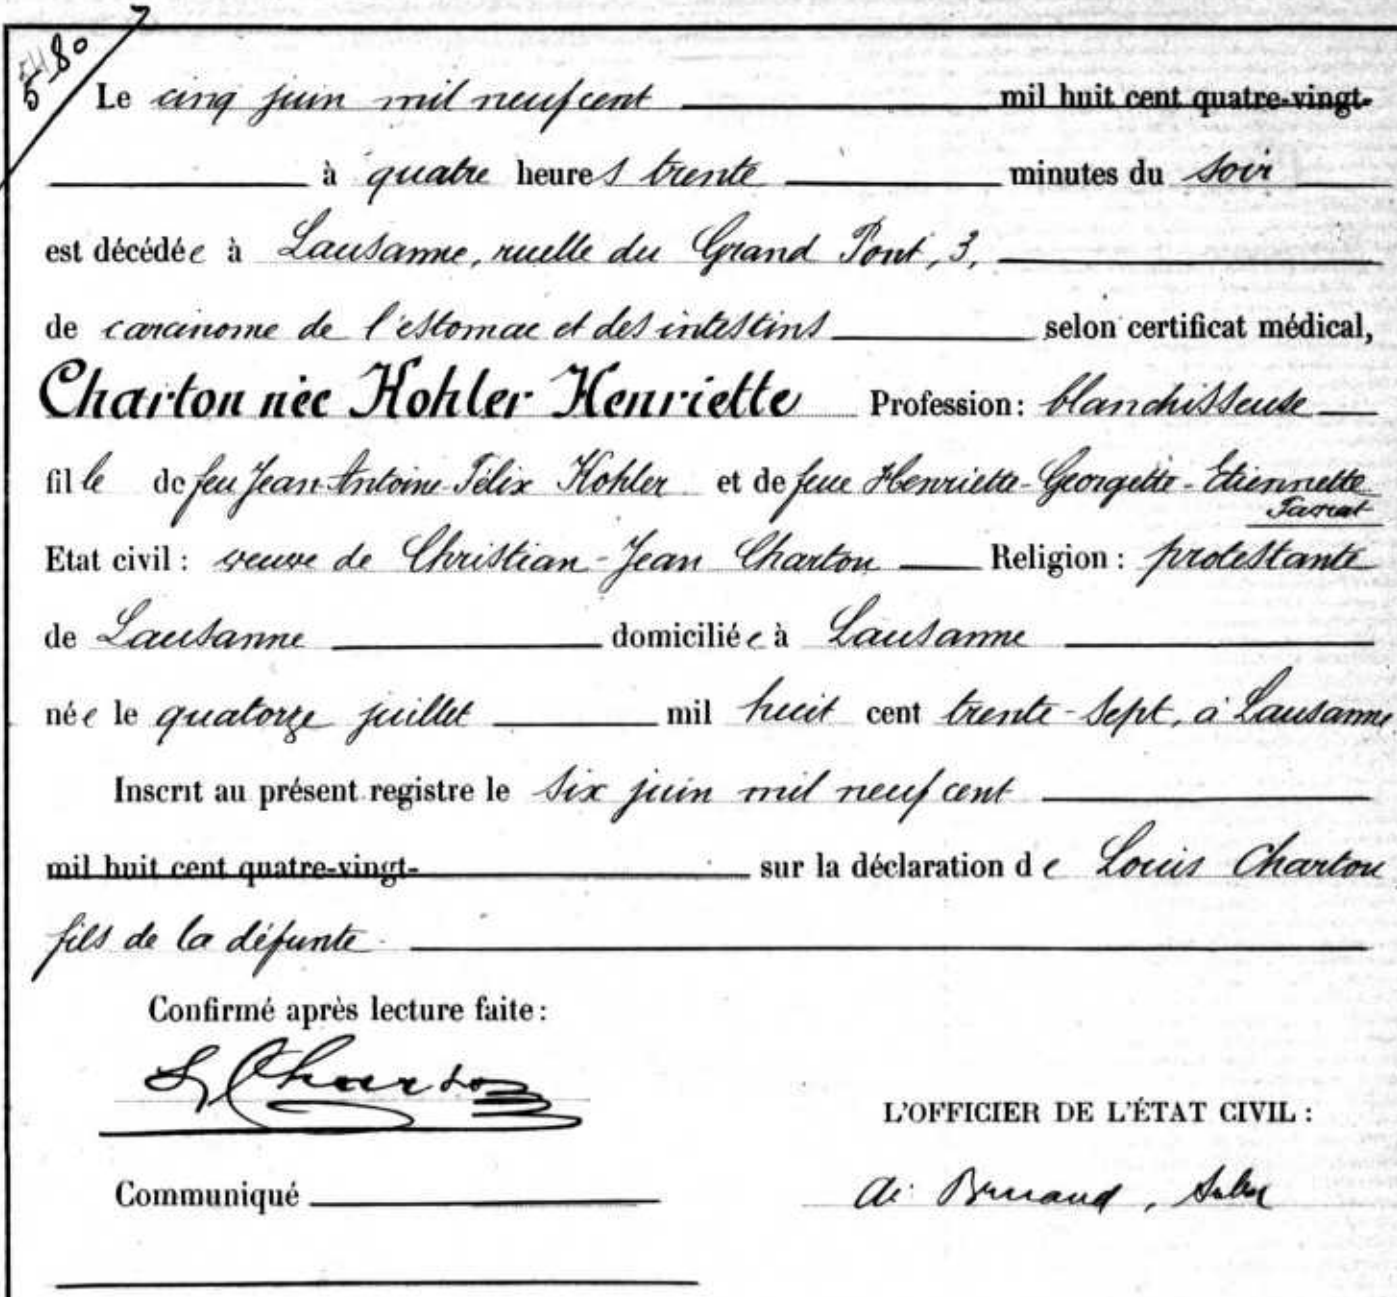 580
Le cinq juin mil neuf cent mil huit cent quatre-vingt-
à quatre heures trente minutes du soir
est décédée à Lausanne, ruelle du Grand Pont, 3,
de carcinome de l'estomac et des intestins selon certificat médical,
Charton née Kohler Henriette Profession: blanchisseuse
fille de feu Jean-Antoine-Félix Kohler et de feue Henriette-Georgette-Etiennette
Etat civil: veuve de Christian-Jean Charton Religion: protestante
de Lausanne domiciliée à Lausanne
née le quatorze juillet mil huit cent trente-sept, à Lausanne
Inscrit au présent registre le six juin mil neuf cent
mil huit cent quatre-vingt- sur la déclaration de Louis Charton
fils de la défunte.
Confirmé après lecture faite:
L Charton
L'OFFICIER DE L'ÉTAT CIVIL:
Communiqué